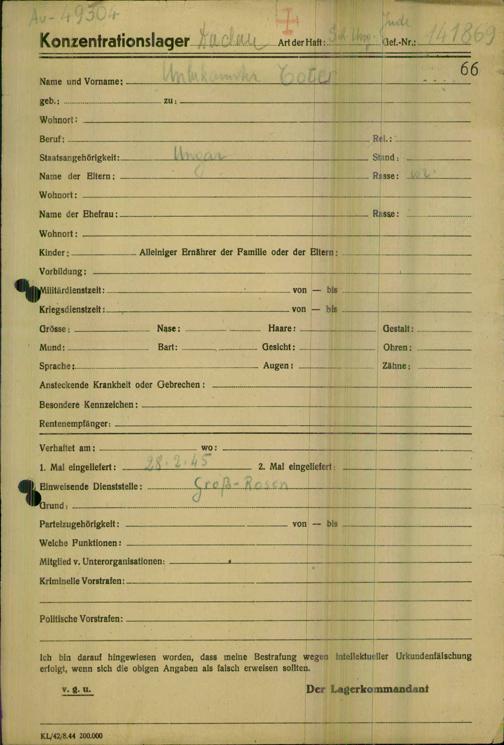 Av-49504
Jude
Konzentrationslager Dachau Art der Haft: Sch Ung. Gef.-Nr.: 141869
66
Name und Vorname: Unbekannter Toter
geb.: zu:
Wohnort:
Beruf: Rel.:
Staatsangehörigkeit: Ungar Stand:
Name der Eltern: Rasse:
Wohnort:
Name der Ehefrau: Rasse:
Wohnort:
Kinder: Alleiniger Ernährer der Familie oder der Eltern:
Vorbildung:
Militärdienstzeit: von — bis
Kriegsdienstzeit: von — bis
Grösse: Nase: Haare: Gestalt:
Mund: Bart: Gesicht: Ohren:
Sprache: Augen: Zähne:
Ansteckende Krankheit oder Gebrechen:
Besondere Kennzeichen:
Rentenempfänger:
Verhaftet am: wo:
1. Mal eingeliefert: 28.2.45 2. Mal eingeliefert:
Einweisende Dienststelle: Groß-Rosen
Grund:
Parteizugehörigkeit: von — bis
Welche Funktionen:
Mitglied v. Unterorganisationen:
Kriminelle Vorstrafen:
Politische Vorstrafen:
Ich bin darauf hingewiesen worden, dass meine Bestrafung wegen intellektueller Urkundenfälschung
erfolgt, wenn sich die obigen Angaben als falsch erweisen sollten.
v. g. u. Der Lagerkommandant
KL/42/8.44 200.000